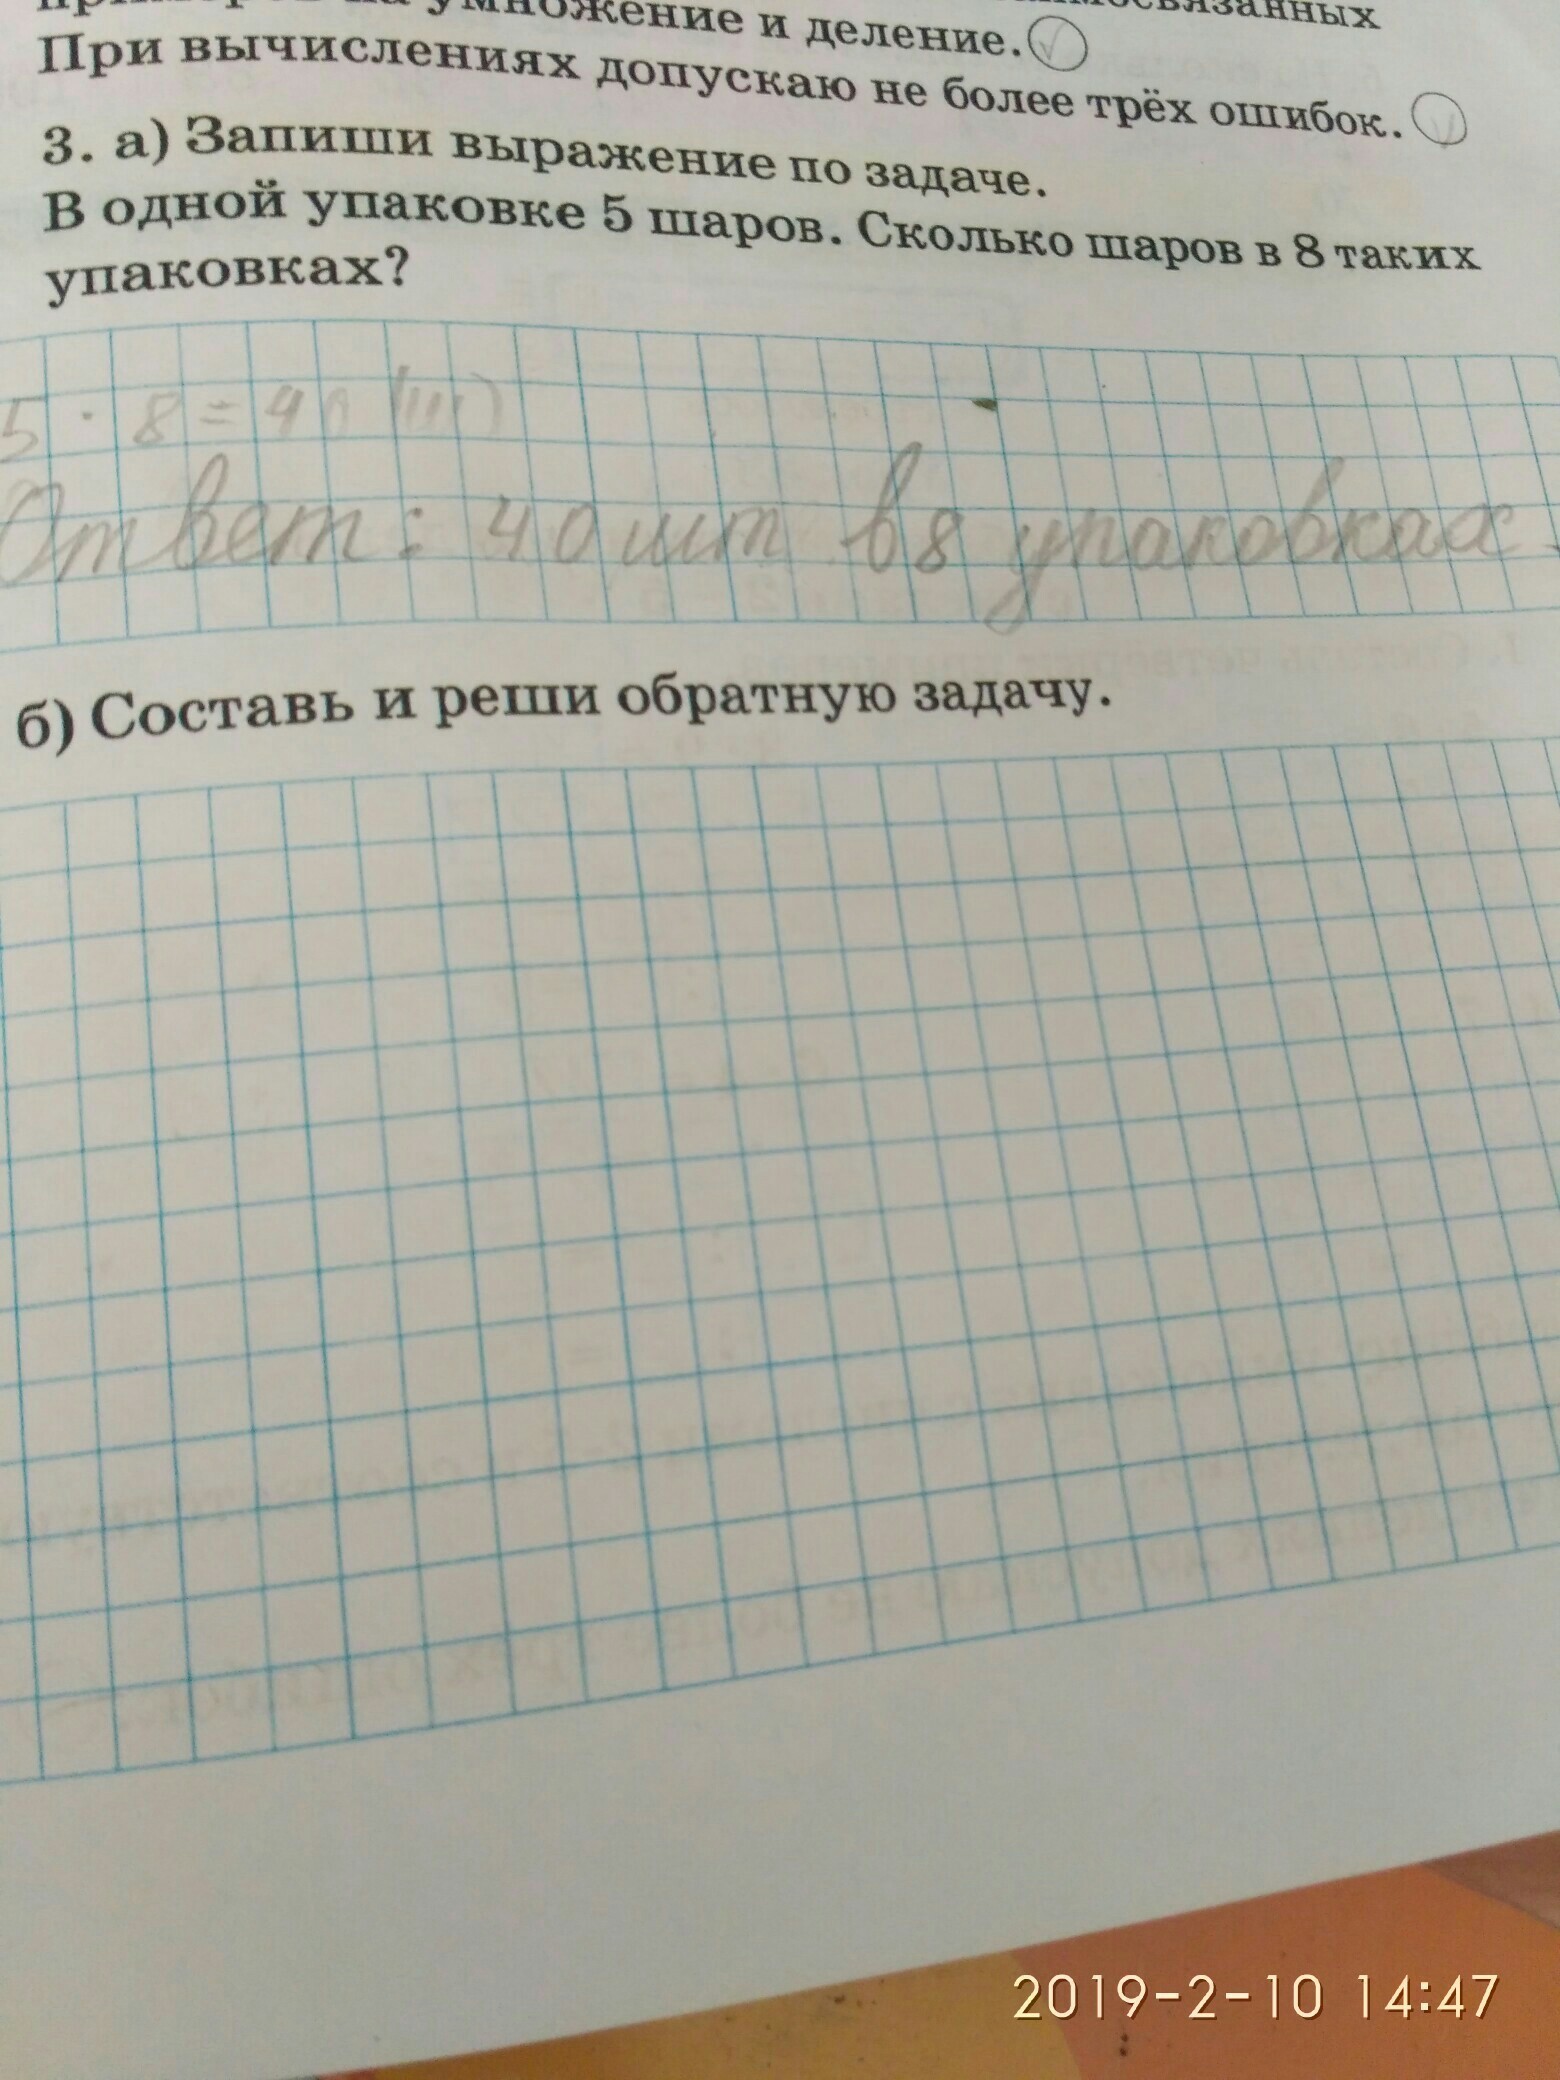 на умножение и деление.
При вычислениях допускаю не более трёх ошибок.
3. а) Запиши выражение по задаче.
В одной упаковке 5 шаров. Сколько шаров в 8 таких
упаковках?
5 · 8 = 40 (ш)
Ответ: 40 шт в 8 упаковках.
б) Составь и реши обратную задачу.
2019-2-10 14:47